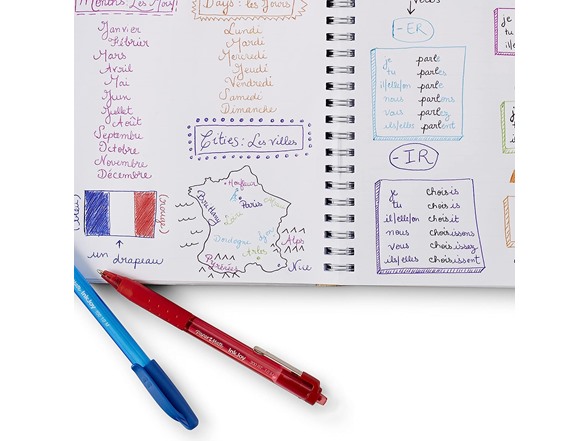 Months: Les Mois
Janvier
Février
Mars
Avril
Mai
Juin
Juillet
Août
Septembre
Octobre
Novembre
Décembre
Days: les Jours
Lundi
Mardi
Mercredi
Jeudi
Vendredi
Samedi
Dimanche
Cities: Les villes
(bleu)
(rouge)
un drapeau
Honfleur
Paris
Brittany
Dordogne
Lyon
Arles
Alps
Pyrénées
Nice
-ER
je parle
tu parles
il/elle/on parle
nous parlons
vous parlez
ils/elles parlent
-IR
je choisis
tu choisis
il/elle/on choisit
nous choisissons
vous choisissez
ils/elles choisissent
je
tu
InkJoy